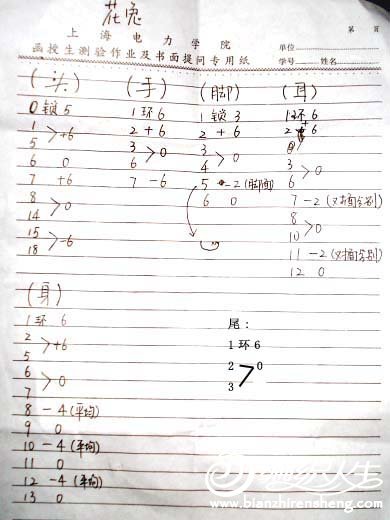 花兔
第 页
上海电力学院
函授生测验作业及书面提问专用纸
单位
学号 姓名
(头)
0 锁 5
1
> +6
5
6 0
7 +6
8
> 0
14
15
> -6
18
(手)
1 环 6
2 + 6
3
> 0
6
7 - 6
(脚)
1 锁 3
2 + 6
3
> 0
4
5 - 2
6 0
(耳)
1 环 6
2 + 6
3
> 0
6
7 - 2 (对 分别)
8
> 0
10
11 - 2 (对 分别)
12 0
(身)
1 环 6
2
> +6
5
6
> 0
7
8 - 4 (平均)
9 0
10 - 4 (平均)
11 0
12 - 4 (平均)
13 0
尾:
1 环 6
2
> 0
3
编织人生
www.bianzhirensheng.com